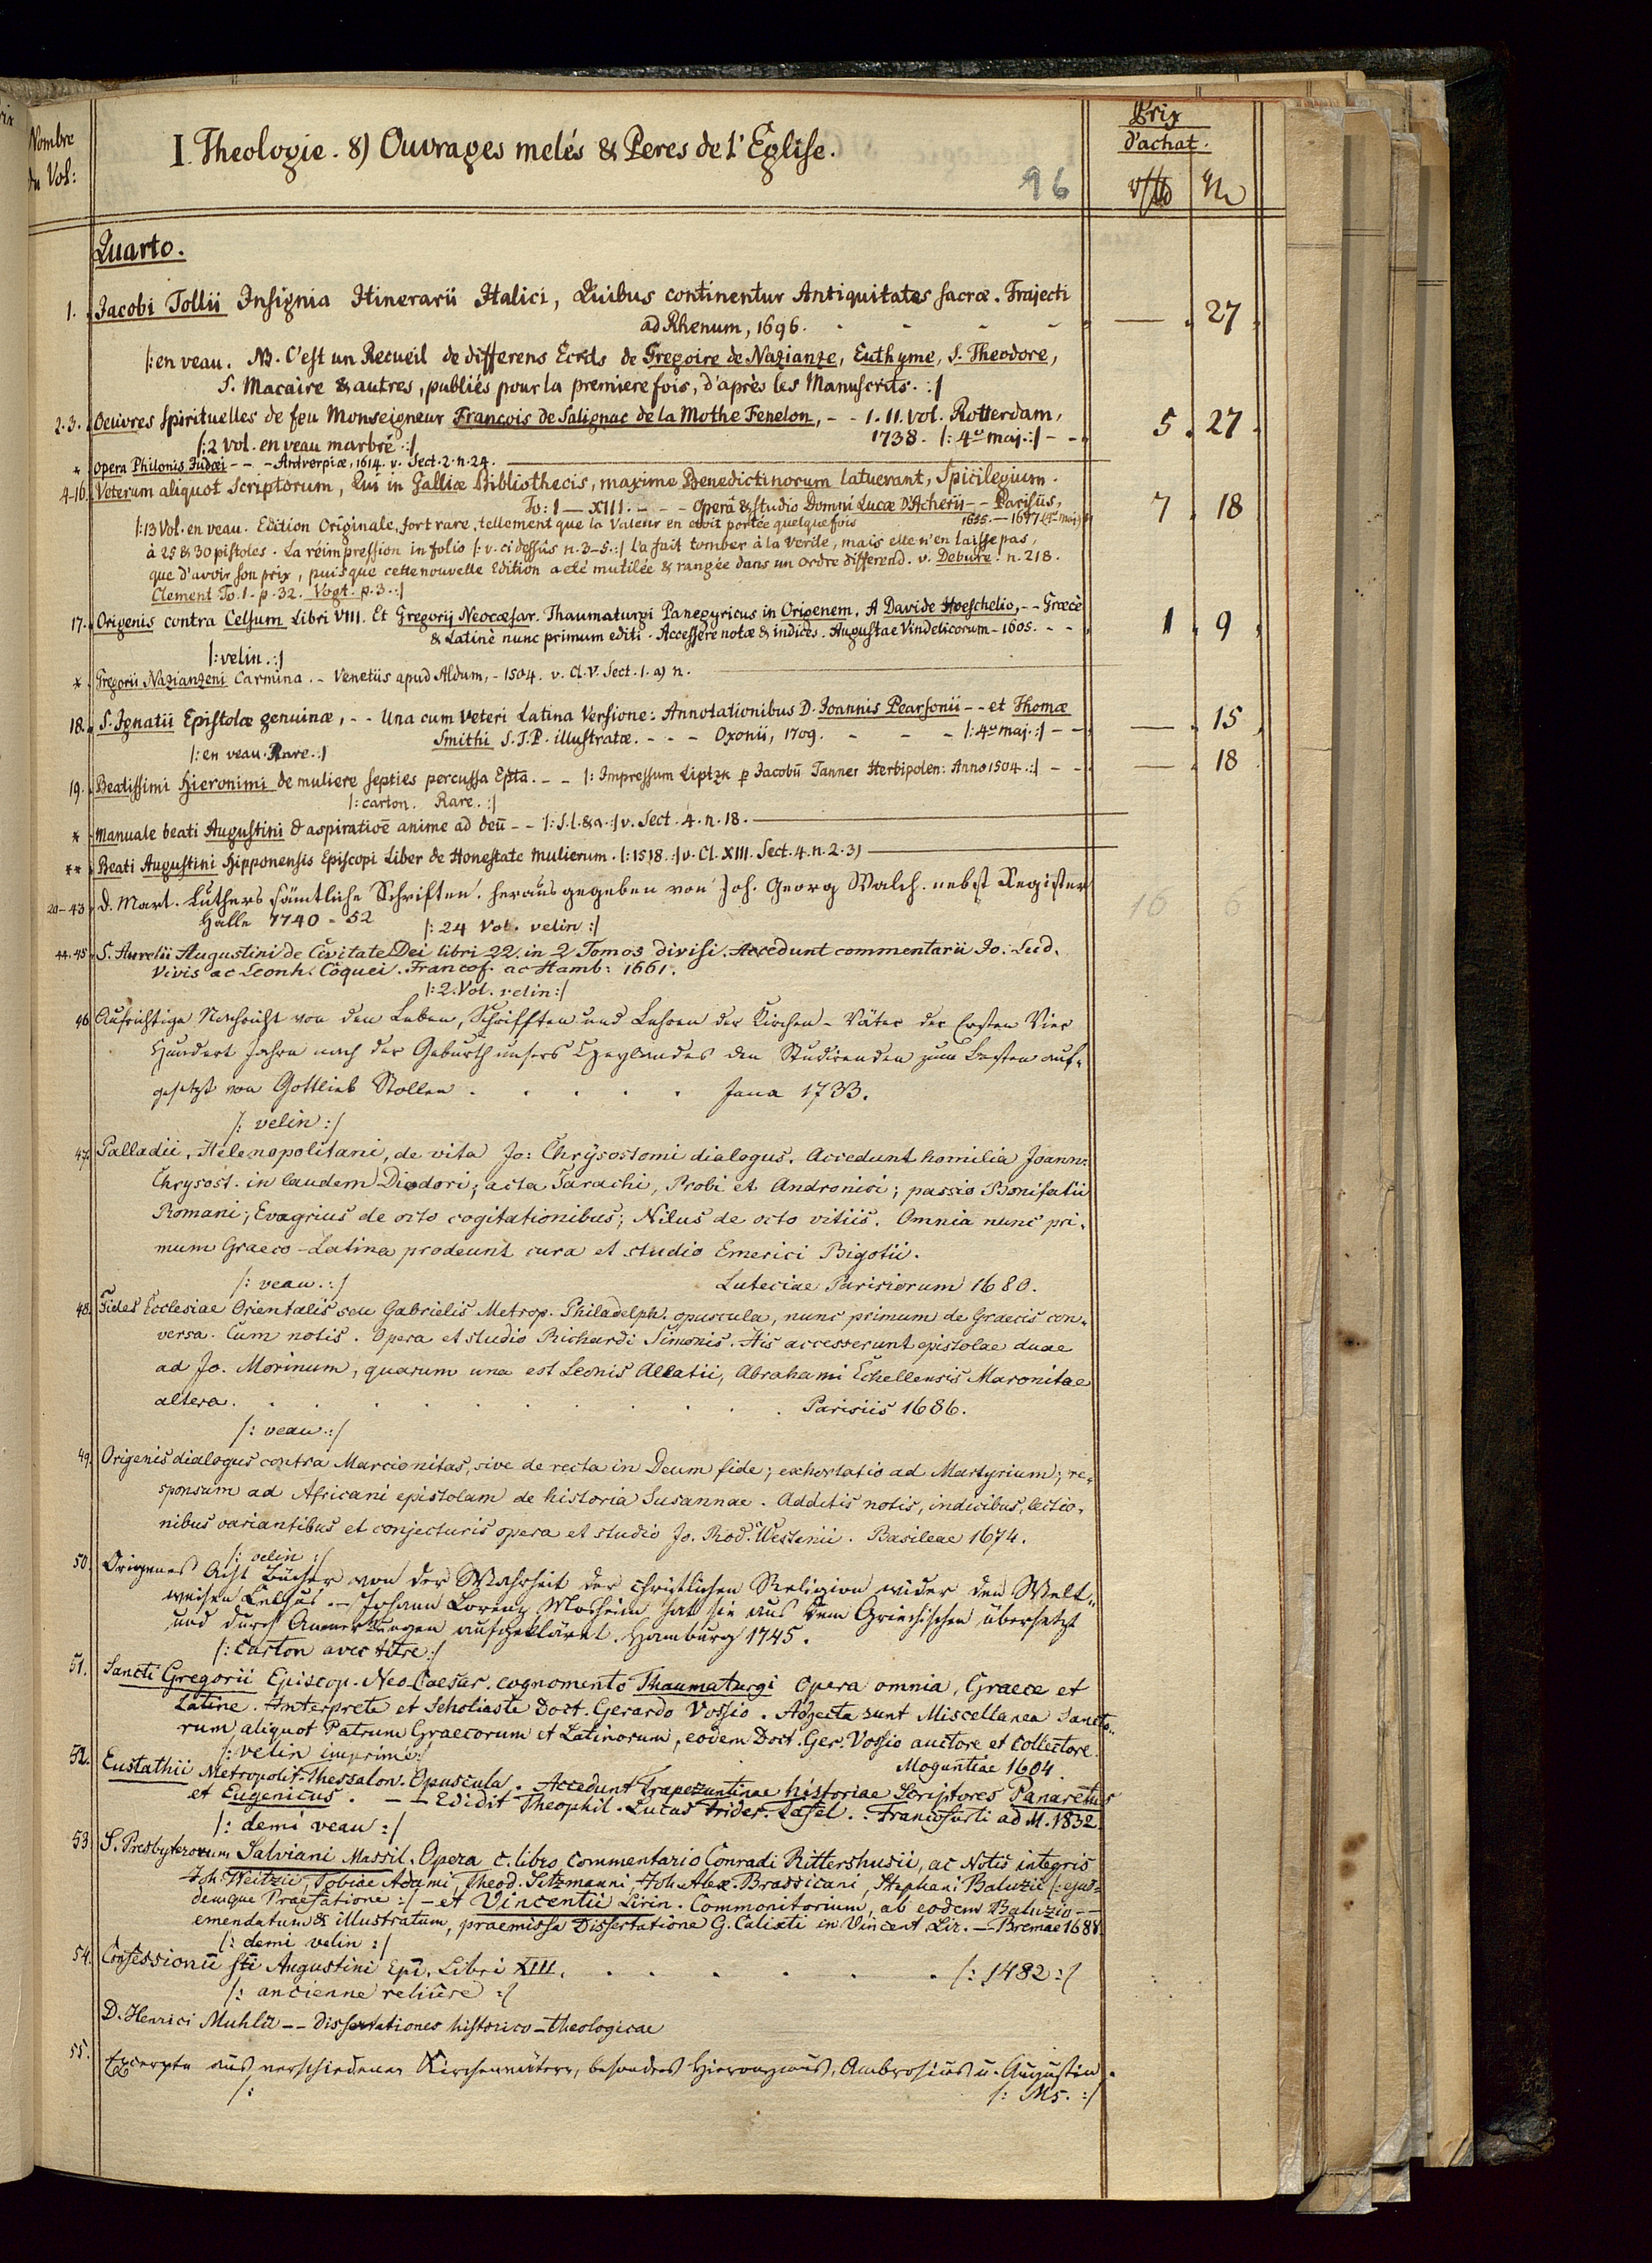 Nombre
du Vol:
I. Theologie. 8) Ouvrages melés & Peres de l'Eglise.
96
Prix
d'achat.
Quarto.
1. Jacobi Tollii Insignia Itinerarii Italici, Quibus continentur Antiquitates sacræ. Trajecti
ad Rhenum, 1696. - - - - — 27
|: en veau. NB. C'est un Recueil de differens Ecrits de Gregoire de Nazianze, Euthyme, S. Theodore,
S. Macaire & autres, publiés pour la premiere fois, d'après les Manuscrits. :|
2.3. Oeuvres Spirituelles de feu Monseigneur François de Salignac de la Mothe Fenelon, - - I. II. Vol. Rotterdam,
1738. |: 4to maj. :| - - 5. 27.
|: 2 Vol. en veau marbré :|
* Opera Philonis Judæi - - - Antverpiæ, 1614. v. Sect. 2. n. 24.
4-16. Veterum aliquot Scriptorum, Qui in Galliæ Bibliothecis, maxime Benedictinorum latuerant, Spicilegium.
To: I — XIII. - - - Operâ & studio Domni Lucæ D'Acherii - - Parisiis,
1655. — 1677. (4to maj.) 7. 18
|: 13 Vol. en veau. Edition Originale, fort rare, tellement que la Valeur en etoit portée quelque fois
à 25 & 30 pistoles. La réimpression in folio |: v. ci dessûs n. 3-5. :| l'a fait tomber à la verité, mais elle n'en laisse pas,
que d'avoir son prix, puisque cette nouvelle Edition a eté mutilée & rangée dans un ordre differend. v. Debure. n. 218.
Clement To. 1. p. 32. Vogt. p. 3. :|
17. Origenis contra Celsum Libri VIII. Et Gregorij Neocæsar. Thaumaturgi Panegyricus in Origenem. A Davide Hoeschelio, - - Græcè
& Latinè nunc primum editi. Accessere notæ & indices. Augustae Vindelicorum - 1605. - - 1. 9.
|: velin. :|
* Gregorii Nazianzeni Carmina. - Venetiis apud Aldum, - 1504. v. Cl. V. Sect. 1. a) n.
18. S. Ignatii Epistolæ genuinæ, - - Una cum Veteri Latina Versione: Annotationibus D. Joannis Pearsonii - - et Thomæ
Smithi S.T.P. illustratæ. - - - Oxonii, 1709. - - - |: 4to maj. :| - - — 15
|: en veau. Rare. :|
19. Beatissimi Hieronimi de muliere septies percussa Epta. - - |: Impressum Liptzk p Jacobū Tanner Herbipolen: Anno 1504 :| - - — 18
|: carton. Rare. :|
* Manuale beati Augustini d aspiratiōe anime ad deū - - |: S.l. & a. :| v. Sect. 4. n. 18.
** Beati Augustini Hipponensis Episcopi Liber de Honestate Mulierum. |: 1518. :| v. Cl. XIII. Sect. 4. n. 2. 3)
20-43. D. Mart. Luthers sämtliche Schriften. heraus gegeben von Joh. Georg Walch. nebst Register
Halle 1740-52 16 6
|: 24 Vol. velin :|
44.45. S. Aurelii Augustini de Civitate Dei libri 22. in 2 Tomos divisi. Accedunt commentarii Jo. Lud.
Vivis ac Leonh. Coquei. Francof. ac Hamb: 1661.
|: 2. Vol. velin :|
46. Aufrichtige Nachricht von den Leben, Schrifften und Lehren der Kirchen-Väter der Ersten Vier
Hundert Jahre nach der Geburth unsers Heylandes den Studirenden zum besten auf-
gesetzt von Gottlieb Stollen . . . . . Jena 1733.
|: velin :|
47. Palladii, Helenopolitani, de vita Jo: Chrysostomi dialogus. Accedunt homilia Joann:
Chrysost. in laudem Diodori; acta Tarachi, Probi et Andronici; passio Bonifatii
Romani; Evagrius de octo cogitationibus; Nilus de octo vitiis. Omnia nunc pri-
mum Graeco-Latina prodeunt cura et studio Emerici Bigotii.
|: veau. :| Luteciae Parisiorum 1680.
48. Fides Ecclesiae Orientalis seu Gabrielis Metrop. Philadelph. opuscula, nunc primum de Graecis con-
versa. Cum notis. Opera et studio Richardi Simonis. His accesserunt epistolae duae
ad Jo. Morinum, quarum una est Leonis Allatii, Abrahami Echellensis Maronitae
altera. . . . . . . . . . . Parisiis 1686.
|: veau. :|
49. Origenis dialogus contra Marcionitas, sive de recta in Deum fide; exhortatio ad Martyrium; re-
sponsum ad Africani epistolam de historia Susannae. Additis notis, indicibus, lectio-
nibus variantibus et conjecturis opera et studio Jo. Rod. Westenii. Basileae 1674.
|: velin :|
50. Origenes Acht Bücher von der Wahrheit der christlichen Religion wider den Welt-
weisen Celsus. — Johann Lorenz Mosheim hat sie aus dem Griechischen übersetzt
und durch Anmerkungen aufgeklärt. Hamburg 1745.
|: Carton avec titre :|
51. Sancti Gregorii Episcop. Neo-Caesar. cognomento Thaumaturgi Opera omnia, Graece et
Latine. Interprete et Scholiaste Doct. Gerardo Vossio. Adjecta sunt Miscellanea Sancto-
rum aliquot Patrum Graecorum et Latinorum, eodem Doct. Ger. Vossio auctore et Collectore.
|: velin imprimé :| Moguntiae 1604.
52. Eustathii Metropolit. Thessalon. Opuscula. Accedunt Trapezuntinae historiae Scriptores Panaretus
et Eugenicus. — — Edidit Theophil. Lucas Frider. Tafel. . Francofurti ad M. 1832.
|: demi veau :|
53. S. Presbyterorum Salviani Massil. Opera c. libro commentario Conradi Rittershusii, ac Notis integris
Joh. Weitzii, Tobiae Adami, Theod. Sitzmanni, Joh. Alex. Brassicani, Stephani Baluzii |: ejus-
demque Praefatione :| - et Vincentii Lirin. Commonitorium, ab eodem Baluzio - -
emendatum & illustratum, praemissa Dissertatione G. Calixti in Vincent Lir. — Bremae 1688.
|: demi velin :|
54. Confessionū sti Augustini Epi. Libri XIII. . . . . . . |: 1482 :|
|: ancienne reliure :|
D. Henrici Muhlii - - Dissertationes historico-theologicae
55. Excerpta aus verschiedenen Kirchenvätern, besonders Hieronymus, Ambrosius u. Augustin.
|: |: Ms. :|